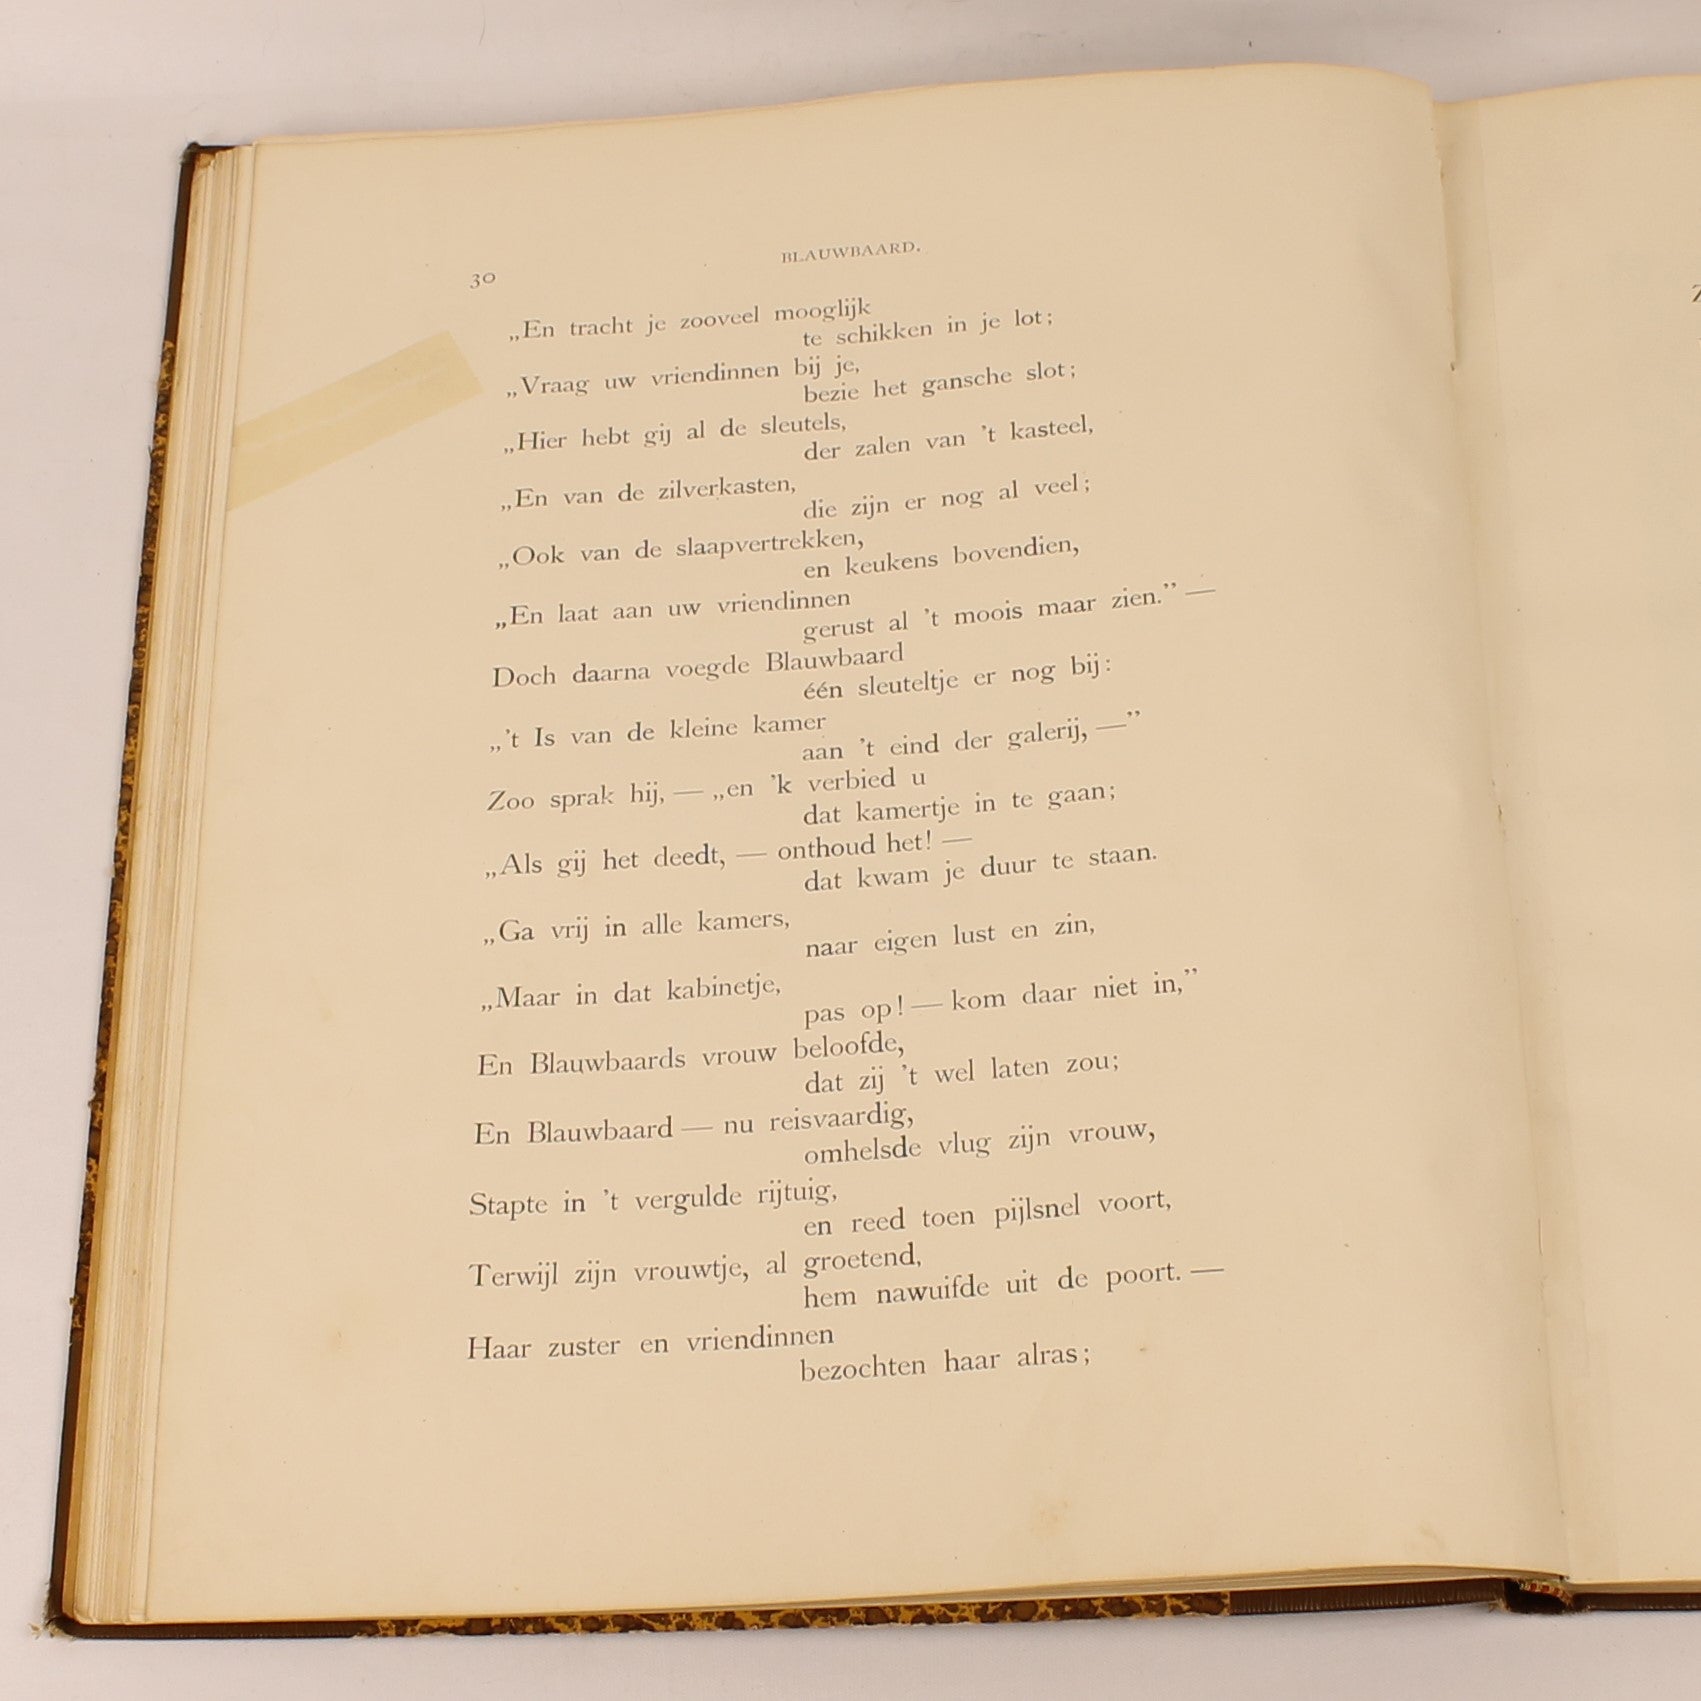 BLAUWBAARD.
30
„En tracht je zooveel mooglijk
te schikken in je lot;
„Vraag uw vriendinnen bij je,
bezie het gansche slot;
„Hier hebt gij al de sleutels,
der zalen van 't kasteel,
„En van de zilverkasten,
die zijn er nog al veel;
„Ook van de slaapvertrekken,
en keukens bovendien,
„En laat aan uw vriendinnen
gerust al 't moois maar zien.” —
Doch daarna voegde Blauwbaard
één sleuteltje er nog bij:
„'t Is van de kleine kamer
aan 't eind der galerij, —”
Zoo sprak hij, — „en 'k verbied u
dat kamertje in te gaan;
„Als gij het deedt, — onthoud het! —
dat kwam je duur te staan.
„Ga vrij in alle kamers,
naar eigen lust en zin,
„Maar in dat kabinetje,
pas op! — kom daar niet in,”
En Blauwbaards vrouw beloofde,
dat zij 't wel laten zou;
En Blauwbaard — nu reisvaardig,
omhelsde vlug zijn vrouw,
Stapte in 't vergulde rijtuig,
en reed toen pijlsnel voort,
Terwijl zijn vrouwtje, al groetend,
hem nawuifde uit de poort. —
Haar zuster en vriendinnen
bezochten haar alras;